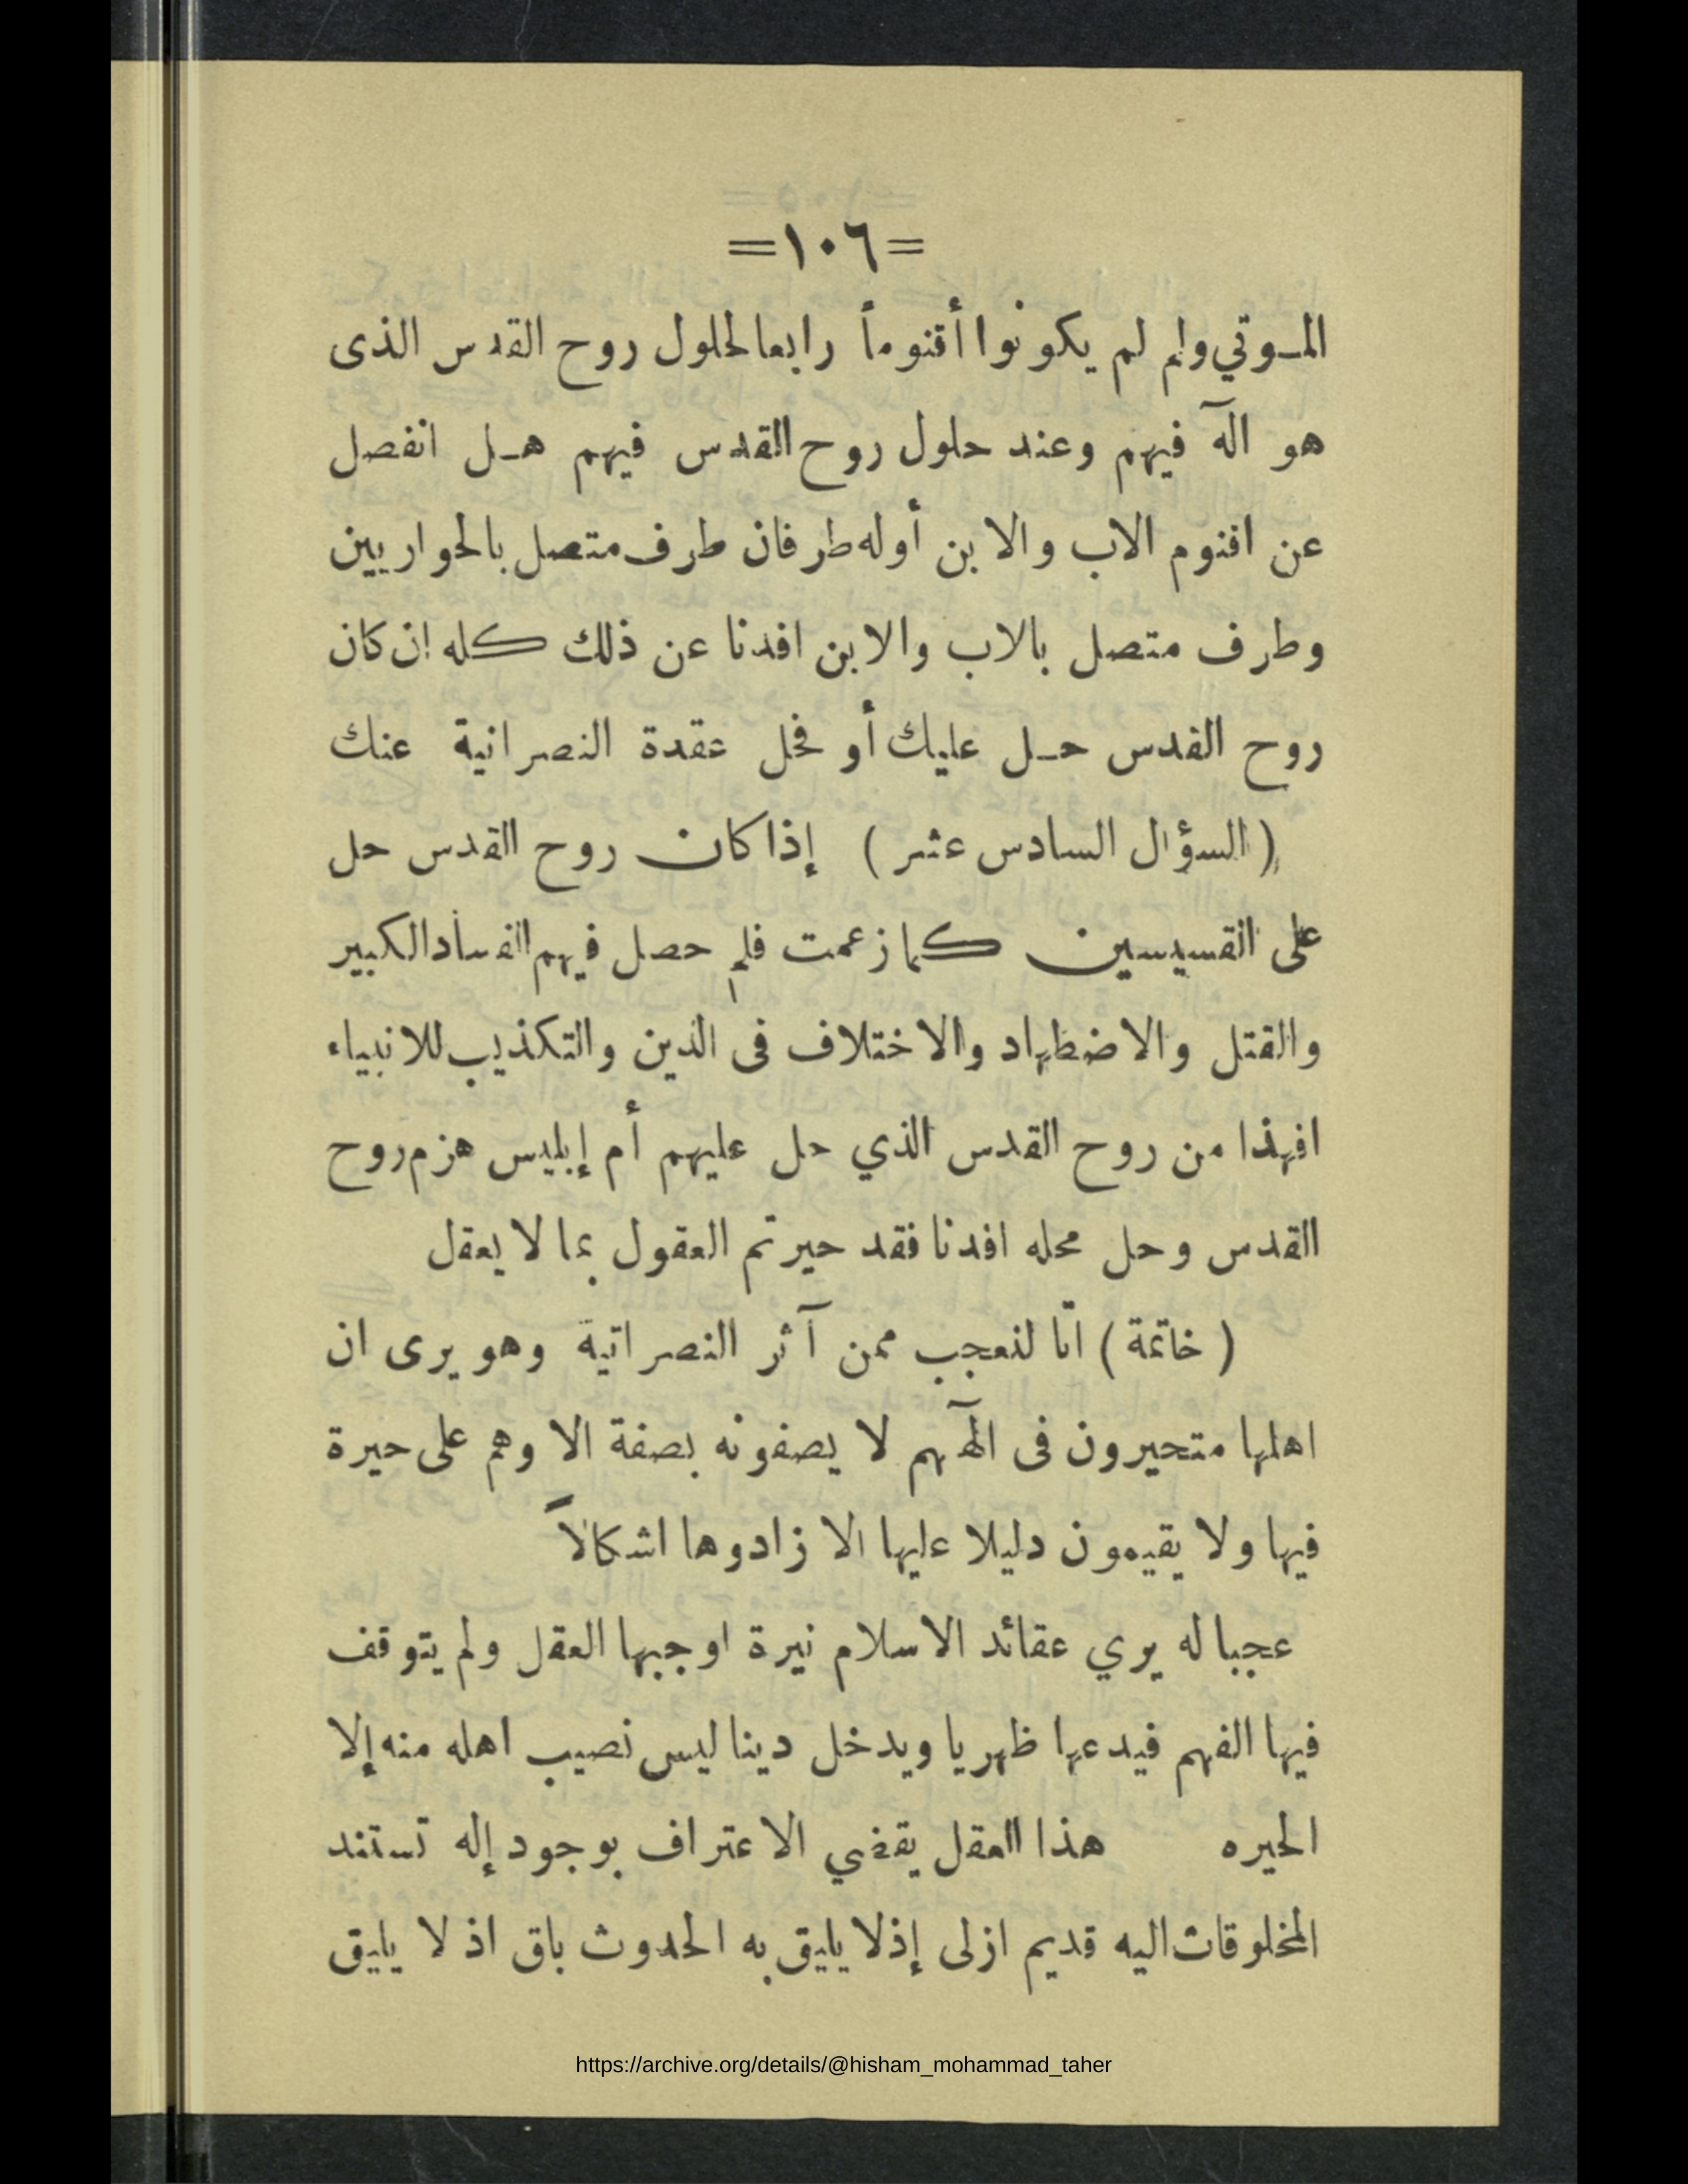 =١٠٦=
المـوتي ولم لم يكونوا أقنوماً رابعا لحلول روح القدس الذى
هو آله فيهم وعند حلول روح القدس فيهم هـل انفصل
عن اقنوم الاب والابن أوله طرفان طرف متصل بالحواريين
وطرف متصل بالاب والابن افدنا عن ذلك كله إن كان
روح القدس حـل عليك أو فحل عقدة النصرانية عنك
( السؤال السادس عشر ) إذا كان روح القدس حل
على القسيسين كما زعمت فلم حصل فيهم الفساد الكبير
والقتل والاضطهاد والاختلاف فى الدين والتكذيب للانبياء
افهذا من روح القدس الذي حل عليهم أم إبليس هزم روح
القدس وحل محله افدنا فقد حيرتم العقول بما لا يعقل
( خاتمة ) انّا لنعجب ممن آثر النصرانية وهو يرى ان
اهلها متحيرون فى آلههم لا يصفونه بصفة الا وهم على حيرة
فيها ولا يقيمون دليلا عليها الا زادوها اشكالاً
عجبا له يري عقائد الاسلام نيرة اوجبها العقل ولم يتوقف
فيها الفهم فيدعها ظهريا ويدخل دينا ليس نصيب اهله منه إلا
الحيره هذا العقل يقضي الاعتراف بوجود إله تستند
المخلوقات اليه قديم ازلى إذ لا يليق به الحدوث باق اذ لا يليق
https://archive.org/details/@hisham_mohammad_taher